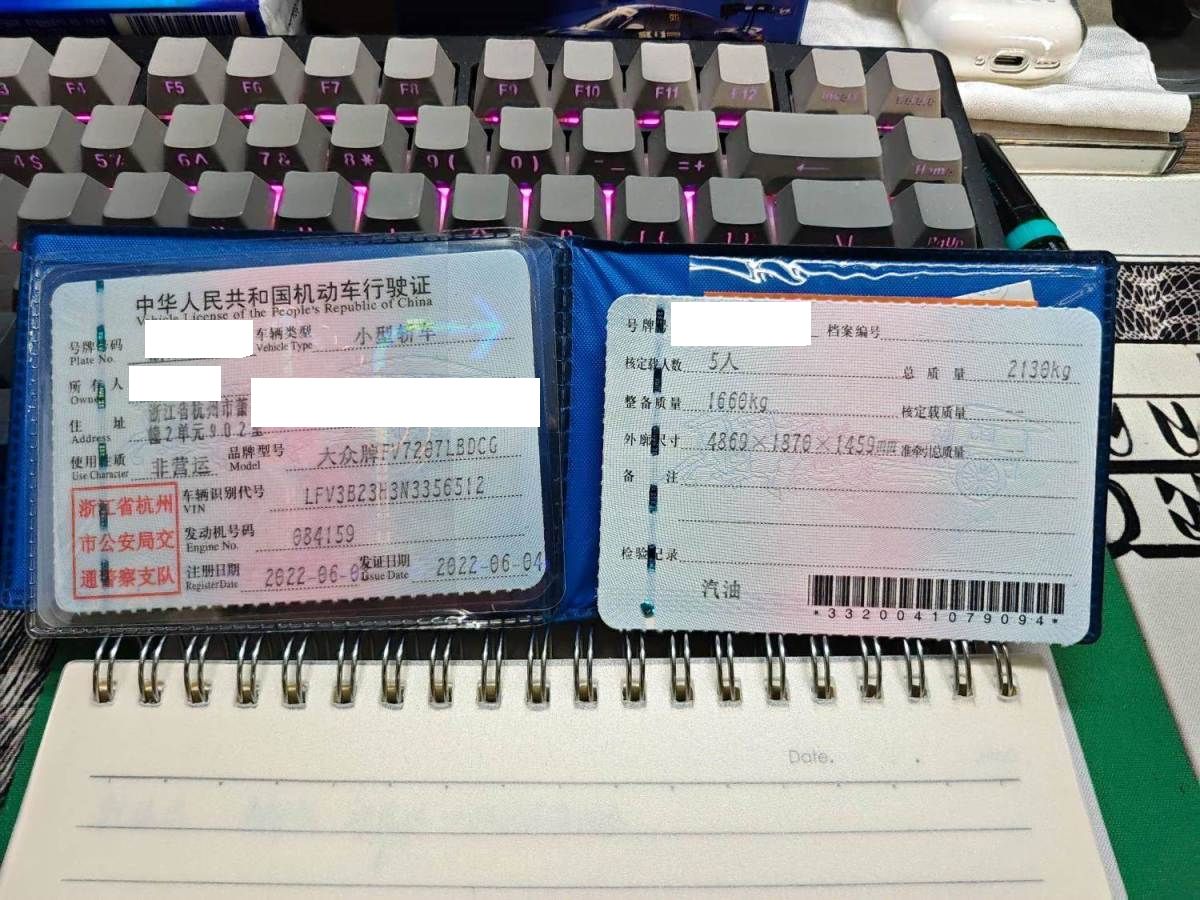 F4 F5 F6 F7 F8 F9 F10 F11 F12
4$ 5% 6^ 7& 8* 9( 0) -_ =+ ← Home
PgUp
中华人民共和国机动车行驶证
Vehicle License of the People's Republic of China
号牌号码
Plate No.
车辆类型 小型轿车
Vehicle Type
所有人
Owner
住址 浙江省杭州市萧
Address 幢2单元902室
使用性质 非营运
Use Character
品牌型号 大众牌FV7207LBDCG
Model
浙江省杭州
市公安局交
通警察支队
车辆识别代号 LFV3B23H3N3356512
VIN
发动机号码 084159
Engine No.
注册日期 2022-06-0
Register Date
发证日期 2022-06-04
Issue Date
号牌号
档案编号
核定载人数 5人
总质量 2130kg
整备质量 1660kg
核定载质量 --
外廓尺寸 4869×1870×1459mm
准牵引总质量 --
备注
检验记录
汽油
*3320041079094*
Date.